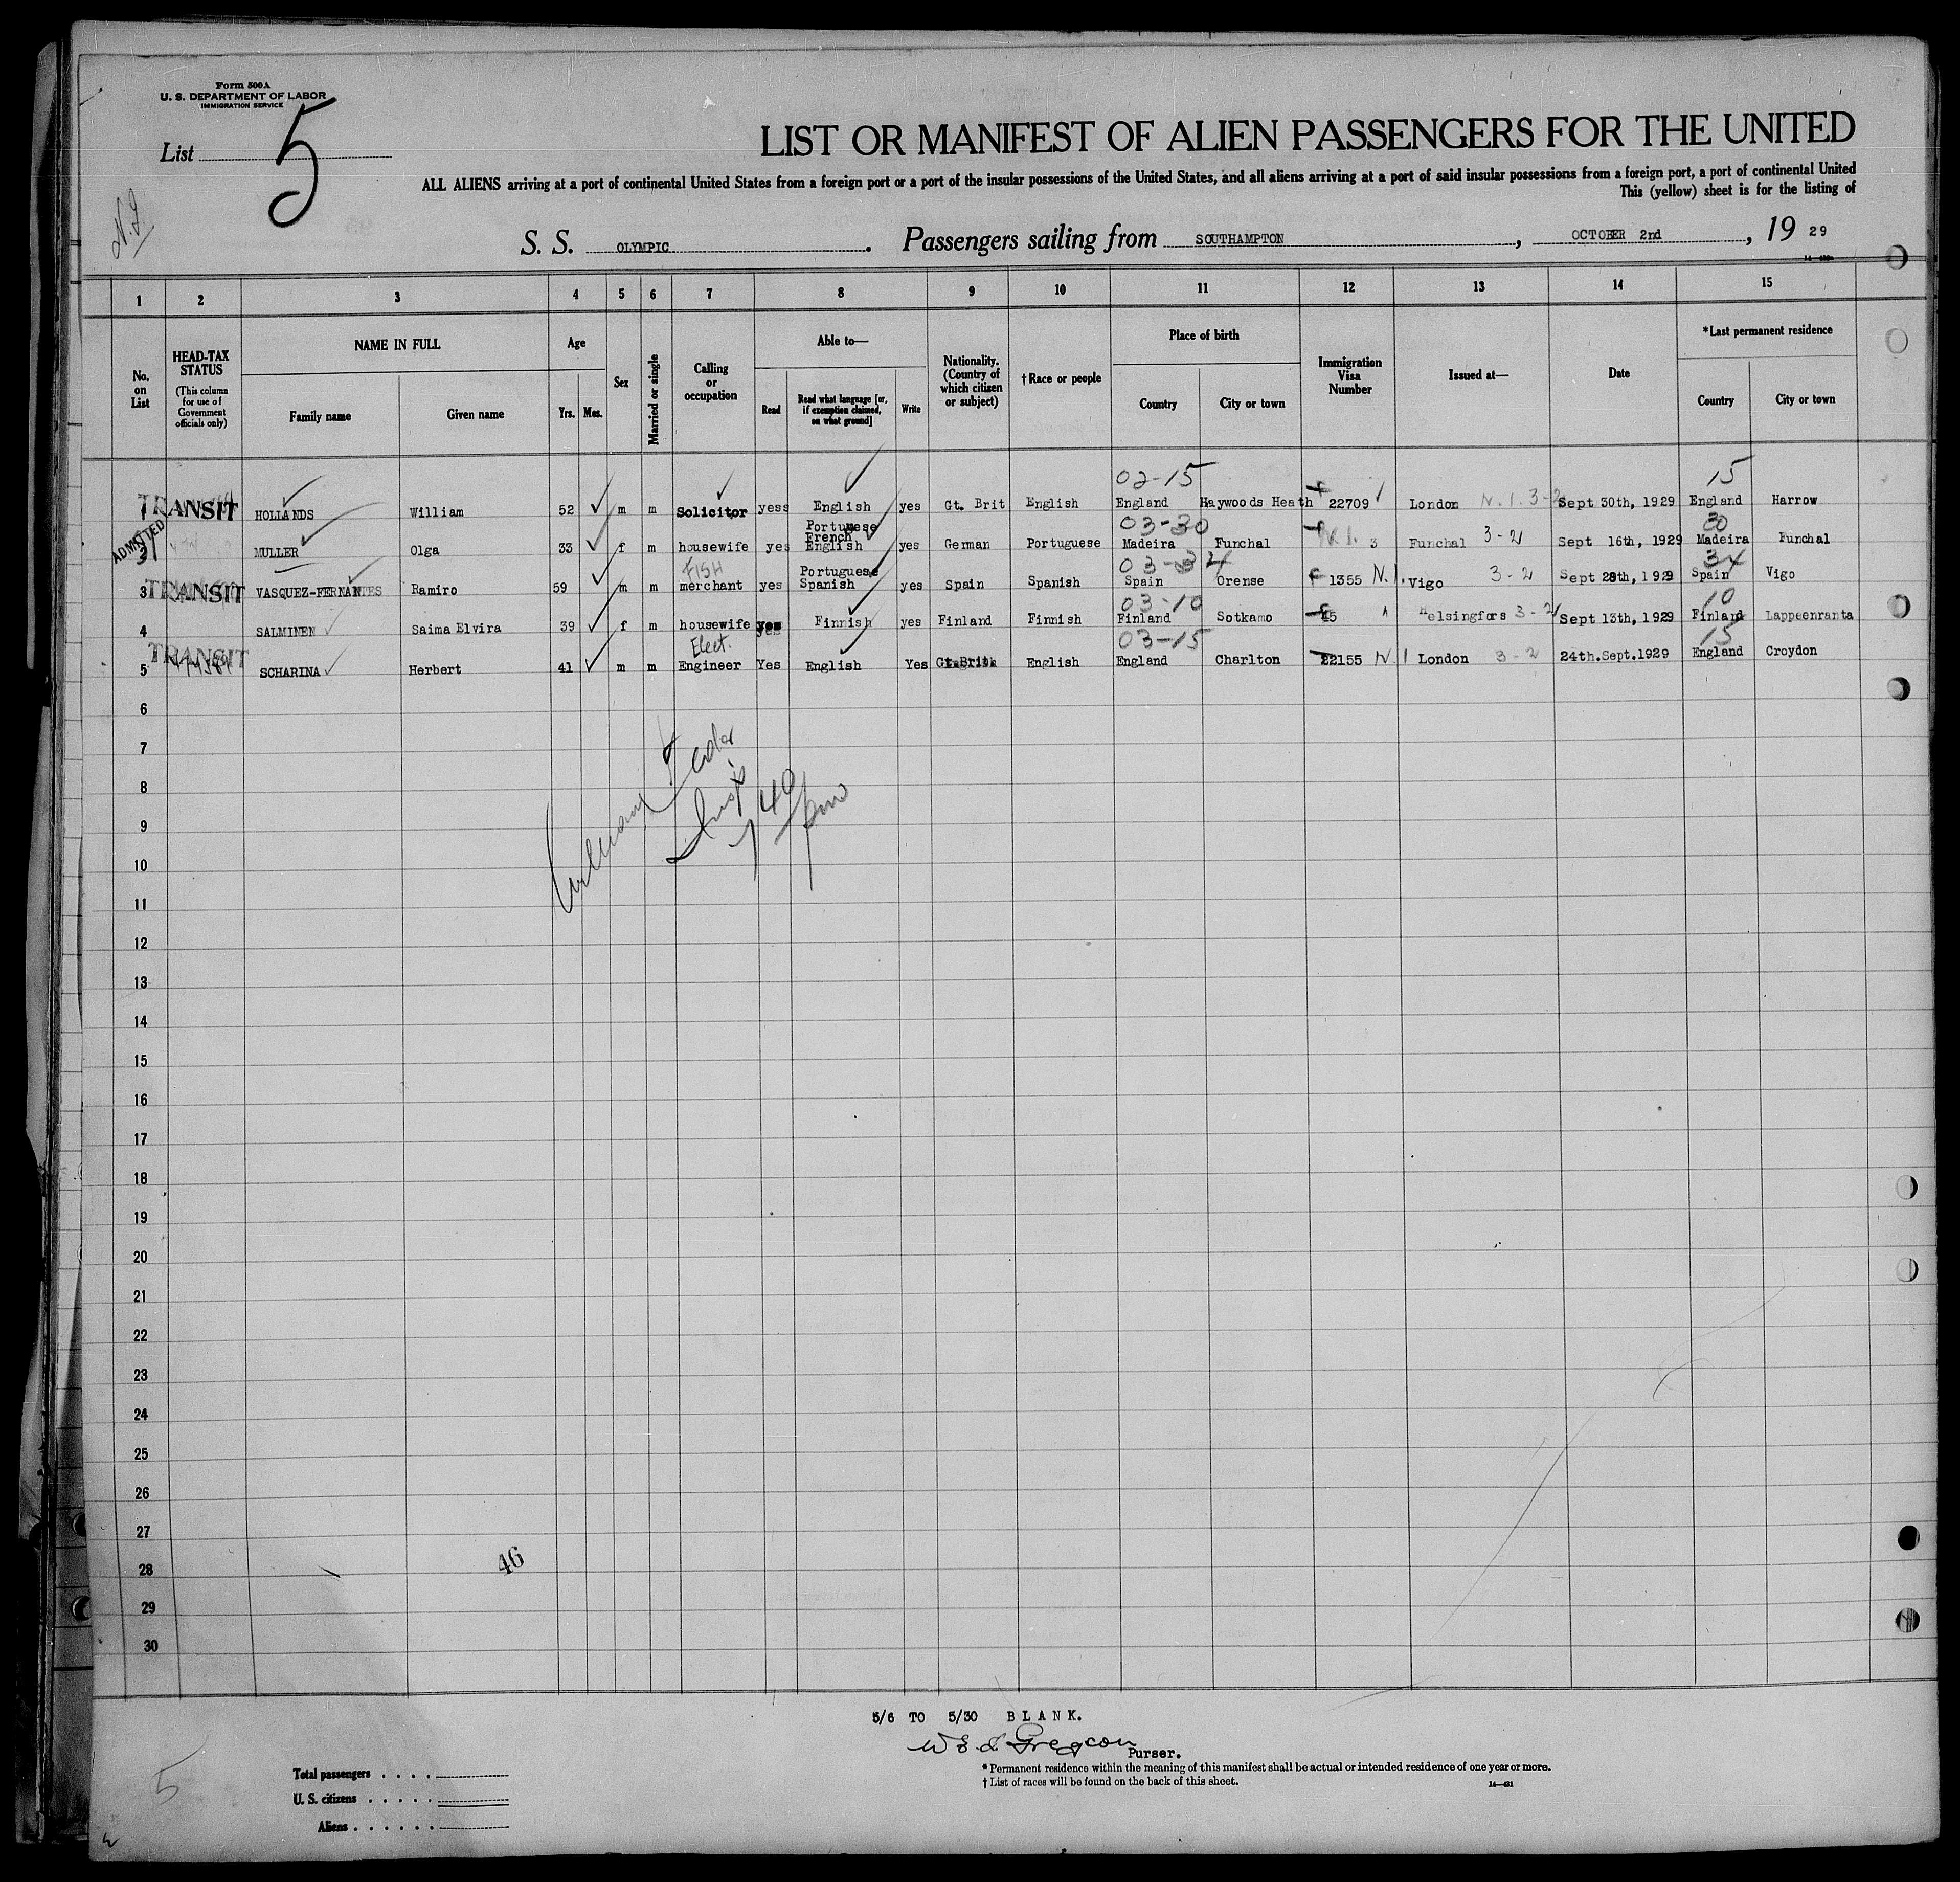 Form 500A
U. S. DEPARTMENT OF LABOR
IMMIGRATION SERVICE
List 5
N.I.
LIST OR MANIFEST OF ALIEN PASSENGERS FOR THE UNITED
ALL ALIENS arriving at a port of continental United States from a foreign port or a port of the insular possessions of the United States, and all aliens arriving at a port of said insular possessions from a foreign port, a port of continental United
This (yellow) sheet is for the listing of
S. S. OLYMPIC . Passengers sailing from SOUTHAMPTON , OCTOBER 2nd , 19 29
1 2 3 4 5 6 7 8 9 10 11 12 13 14 15
No. on List
HEAD-TAX STATUS (This column for use of Government officials only)
NAME IN FULL
Family name Given name
Age
Yrs. Mos.
Sex
Married or single
Calling or occupation
Able to—
Read
Read what language [or, if exemption claimed, on what ground]
Write
Nationality. (Country of which citizen or subject)
†Race or people
Place of birth
Country City or town
Immigration Visa Number
Issued at—
Date
*Last permanent residence
Country City or town
02-15 15
1 TRANSIT HOLLANDS William 52 m m Solicitor yes English yes Gt. Brit English England Haywoods Heath 22709 London N.I. 3-2 Sept 30th, 1929 England Harrow
Portuguese
French 03-30 30
ADMITTED 2 MULLER Olga 33 f m housewife yes English yes German Portuguese Madeira Funchal N.I. 3 Funchal 3-2 Sept 16th, 1929 Madeira Funchal
FISH Portuguese 03-34 34
3 TRANSIT VASQUEZ-FERNANTES Ramiro 59 m m merchant yes Spanish yes Spain Spanish Spain Orense 1355 N.I. Vigo 3-2 Sept 28th, 1929 Spain Vigo
03-10 10
4 SALMINEN Saima Elvira 39 f m housewife yes Finnish yes Finland Finnish Finland Sotkamo 45 Helsingfors 3-2 Sept 13th, 1929 Finland Lappeenranta
Elect. 03-15 15
5 TRANSIT SCHARINA Herbert 41 m m Engineer Yes English Yes Gt.Brit. English England Charlton 22155 N I London 3-2 24th.Sept.1929 England Croydon
6
7
8
9
10
11
12
13
14
15
16
17
18
19
20
21
22
23
24
25
26
27
28
29
30
Insp
7 40 pm
46
5/6 TO 5/30 BLANK.
Purser.
Total passengers . . . .
U. S. citizens . . . . .
Aliens . . . . . .
* Permanent residence within the meaning of this manifest shall be actual or intended residence of one year or more.
† List of races will be found on the back of this sheet.
14—421
5